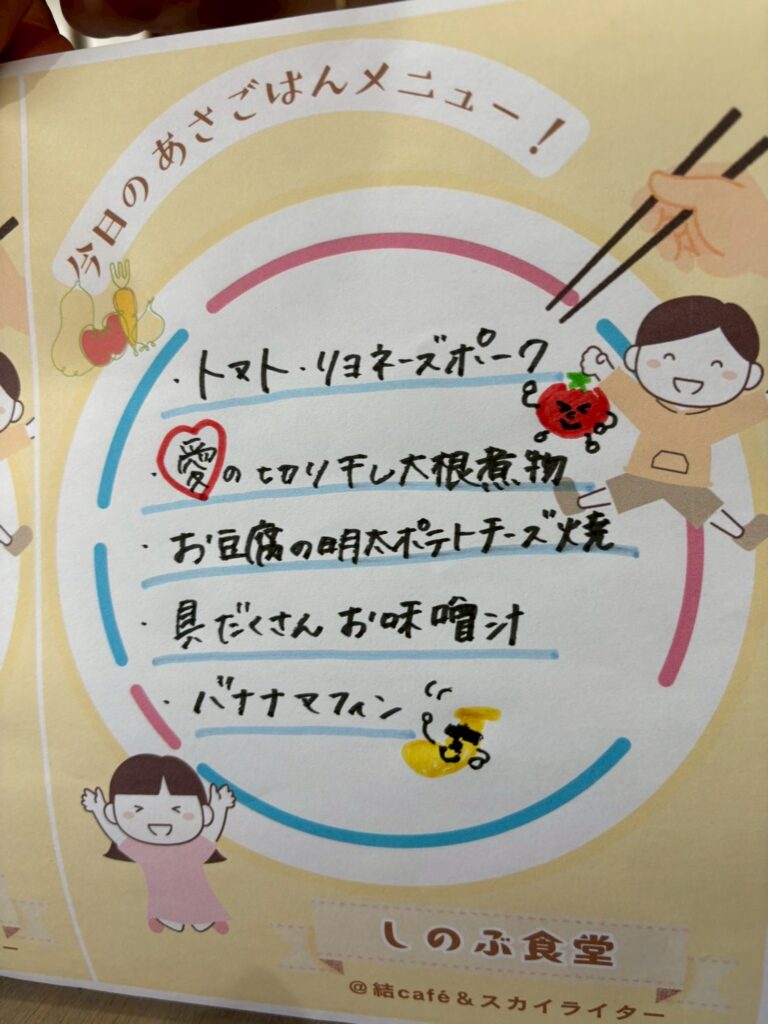 今日のあさごはんメニュー！
・トマト・リヨネーズポーク
・愛の切り干し大根煮物
・お豆腐の明太ポテトチーズ焼
・具だくさんお味噌汁
・バナナマフィン
しのぶ食堂
@結café＆スカイライター
ー